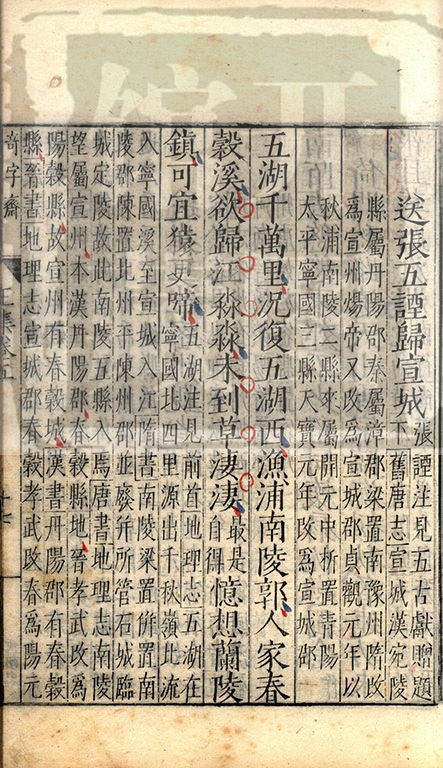 送張五諲歸宣城張諲註見五古獻贈題下舊唐志宣城漢宛陵
縣屬丹陽郡秦屬漳郡梁置南豫州隋改
為宣州煬帝又改為宣城郡貞觀元年以
秋浦南陵二縣來屬開元中析置青陽
太平寧國三縣天寶元年改為宣城郡
五湖千萬里況復五湖西漁浦南陵郭人家春
穀溪欲歸江淼淼未到草淒淒最是自得憶想蘭陵
鎮可宜猿更啼五湖注見前首地理志五湖在
寧國北四里源出千秋嶺北流
入寧國溪至宣城入江隋書南陵梁置併置南
陵郡陳置北州平陳州郡並廢并所管石城臨
城定陵故此南陵五縣入焉唐書地理志南陵
望屬宣州本漢丹陽郡春穀縣地晉孝武改為
陽穀縣故宣州有春穀城漢書丹陽郡有春穀
縣晉書地理志宣城郡春穀孝武改春為陽元
奇字齋